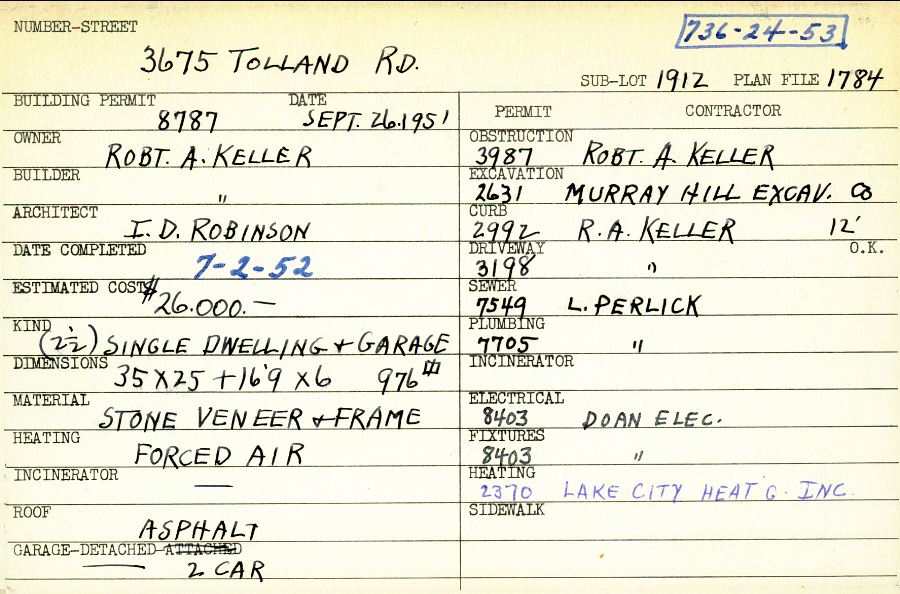 NUMBER-STREET
736-24-53
3675 TOLLAND RD.
SUB-LOT 1912 PLAN FILE 1784
BUILDING PERMIT DATE
8787 SEPT. 26.1951
OWNER
ROBT. A. KELLER
BUILDER
"
ARCHITECT
I. D. ROBINSON
DATE COMPLETED
7-2-52
ESTIMATED COST
$26.000.—
KIND
(2½) SINGLE DWELLING + GARAGE
DIMENSIONS
35 X 25 + 16'9 X 6 976
MATERIAL
STONE VENEER + FRAME
HEATING
FORCED AIR
INCINERATOR
—
ROOF
ASPHALT
GARAGE-DETACHED-ATTACHED
2 CAR
PERMIT CONTRACTOR
OBSTRUCTION
3987 ROBT. A. KELLER
EXCAVATION
2631 MURRAY HILL EXCAV. CO
CURB
2992 R. A. KELLER 12'
DRIVEWAY O.K.
3198 "
SEWER
7549 L. PERLICK
PLUMBING
7705 "
INCINERATOR
ELECTRICAL
8403 DOAN ELEC.
FIXTURES
8403 "
HEATING
2370 LAKE CITY HEAT'G. INC.
SIDEWALK